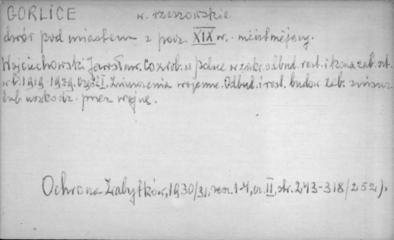 GORLICE w. rzeszowskie
dwór pod miastem z pocz. XIX w. - nieistniejący.
Wojciechowski Jarosław. Co zrob. w Polsce w zakr. odbud. rest. i konser. zab. szt.
w l. 1919-1929. Część I. Zniszczenia wojenne. Odbud. i rest. budow. zab. zniszcz.
lub uszkodz. przez wojnę.
Ochrona Zabytków, 1930/31, rocz. 1-4, cz. II, str. 243-318 /252/.